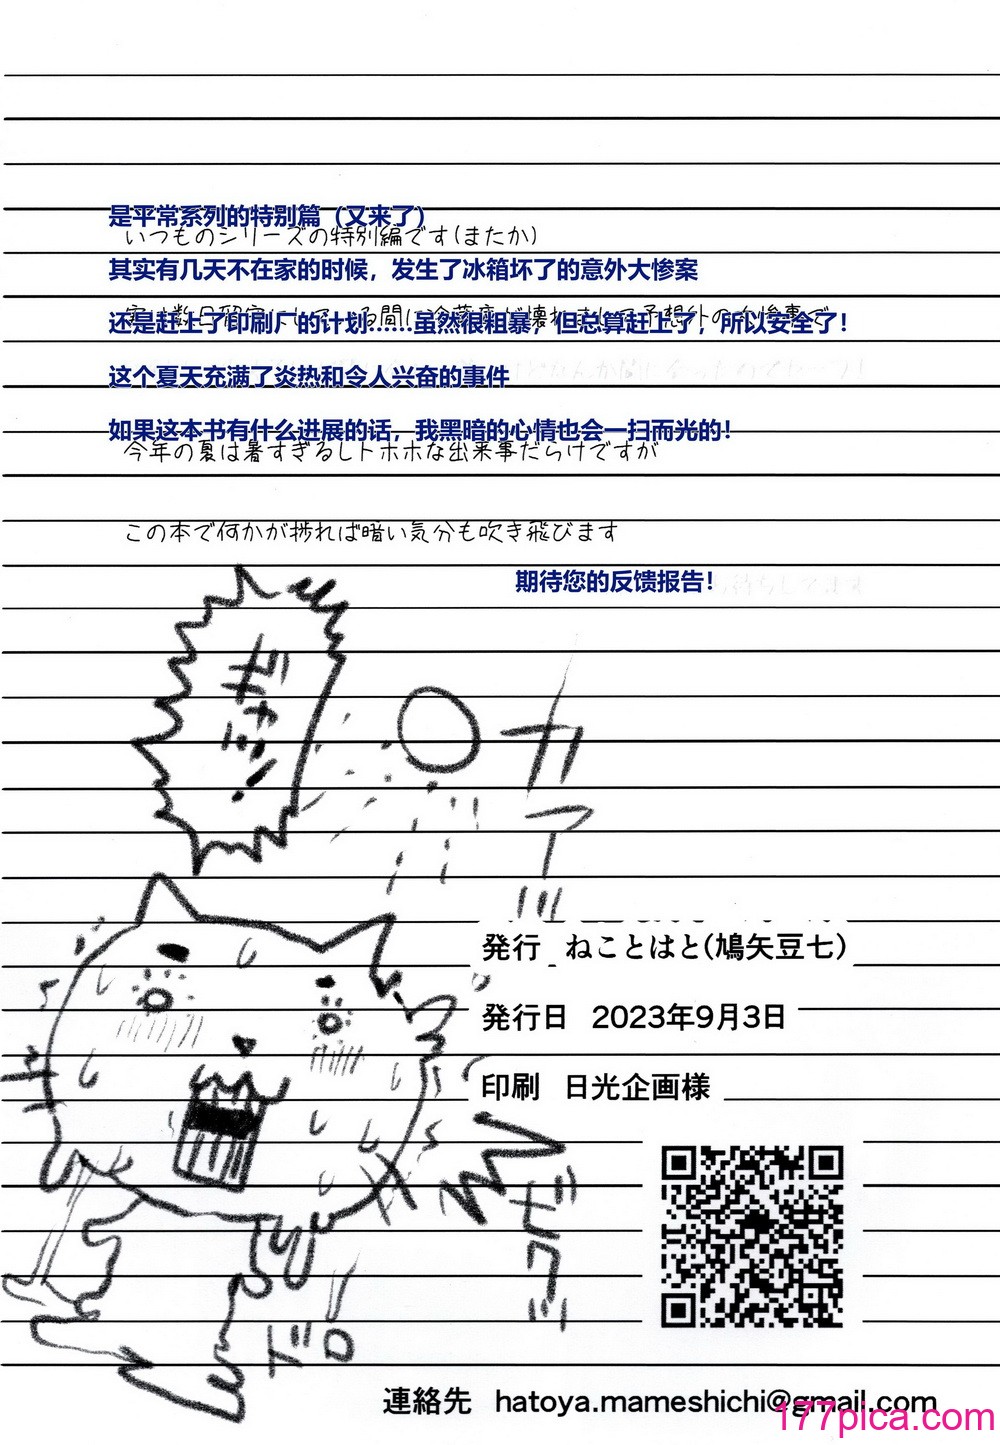 是平常系列的特别篇（又来了）
いつものシリーズの特別編です(またか)
其实有几天不在家的时候，发生了冰箱坏了的意外大惨案
还是赶上了印刷厂的计划……虽然很粗暴，但总算赶上了，所以安全了！
这个夏天充满了炎热和令人兴奋的事件
如果这本书有什么进展的话，我黑暗的心情也会一扫而光的！
今年の夏は暑すぎるしトホホな出来事だらけですが
この本で何かが捗れば暗い気分も吹き飛びます
期待您的反馈报告！
ギャッ！
ガ
ア
ビクッ
ドロ
発行 ねことはと(鳩矢豆七)
発行日 2023年9月3日
印刷 日光企画様
連絡先 hatoya.mameshichi@gmail.com
177pica.com